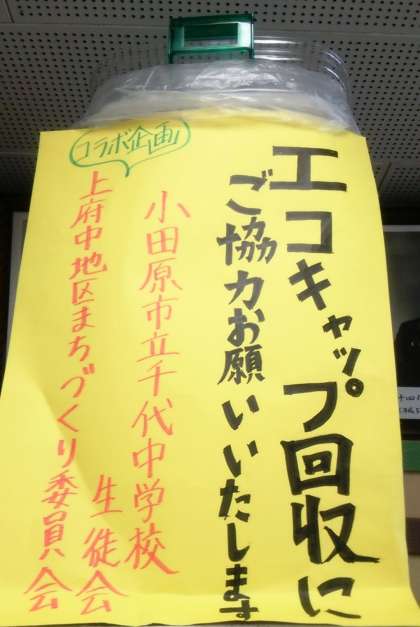 エコキャップ回収に
ご協力お願いいたします
小田原市立千代中学校
生徒会
コラボ企画
上府中地区まちづくり委員会